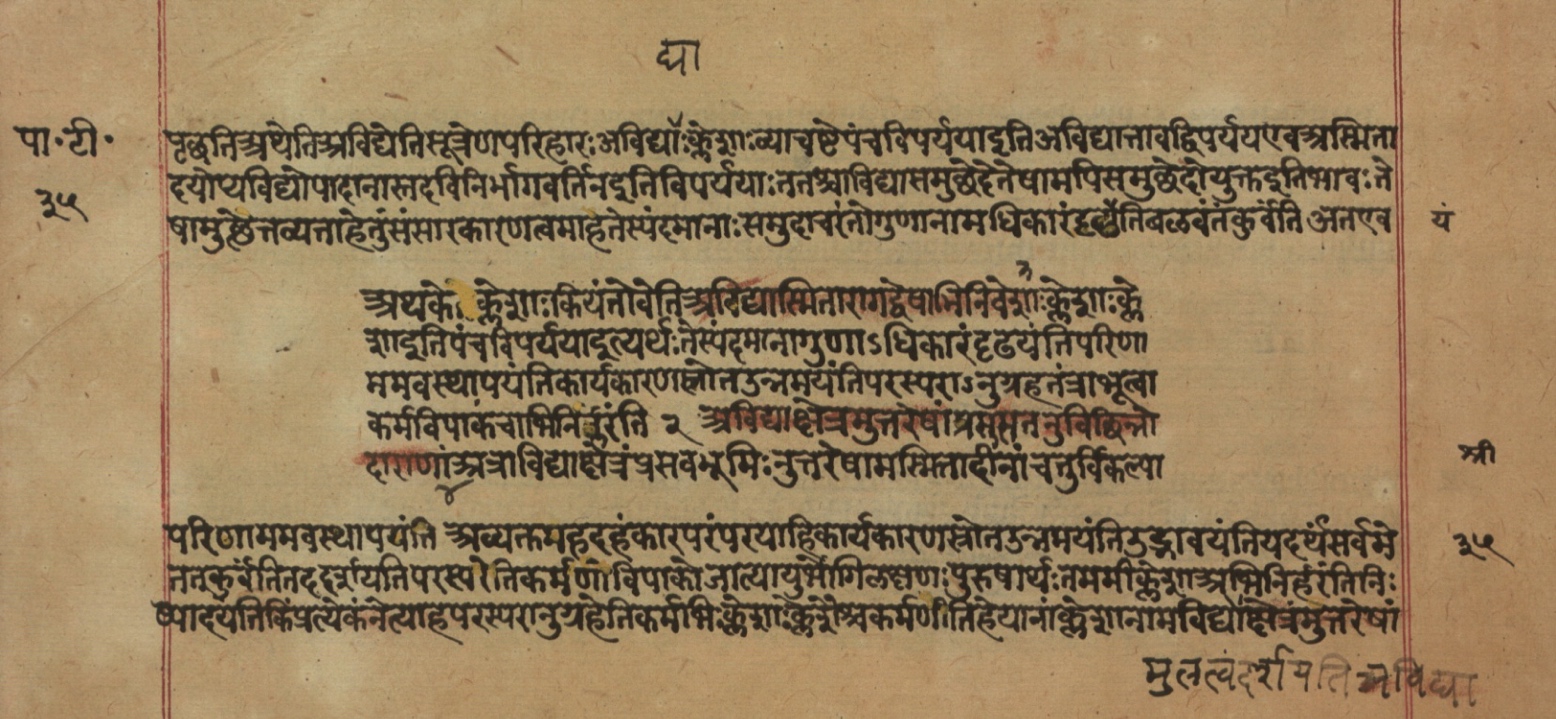 द्या
पा॰टी॰
पृछतिअथेतिअविद्येतिसूत्रेणपरिहारःअविद्याःक्लेशाःव्याचष्टेपंचविपर्ययाइतिअविद्यातावद्विपर्ययएवअस्मिता
३५
दयोप्यविद्योपादानास्तदविनिर्भागवर्तिनइतिविपर्ययाःततश्चाविद्यासमुछेदेतेषामपिसमुछेदोयुक्तइतिभावःते
षामुछेत्तव्यताहेतुंसंसारकारणत्वमाहतेस्पंदमानाःसमुदाचरंतोगुणानामधिकारंदृढयंतिबळवंतंकुर्वंतिअतएव
यं
अथकेक्लेशाःकियंतोवेतिअविद्यास्मितारागद्वेषाभिनिवेशाःक्लेशाःक्ले
शाइतिपंचविपर्ययाइत्यर्थःतेस्पंदमानागुणाऽधिकारंदृढयंतिपरिणा
ममवस्थापयंतिकार्यकारणस्रोतउन्नमयंतिपरस्पराऽनुग्रहतंत्राभूत्वा
कर्मविपाकंचाभिनिर्हरंति २ अविद्याक्षेत्रमुत्तरेषांप्रसुप्ततनुविछिन्नो
दाराणांअत्राविद्याक्षेत्रंप्रसवभूमिःनुत्तरेषामस्मितादीनांचतुर्विकल्पा
श्री
परिणाममवस्थापयंति अव्यक्तमहदहंकारपरंपरयाहिकार्यकारणस्रोतउन्नमयंतिउद्भावयंतियदर्थंसर्वमे
३५
तत्कुर्वंतितद्दर्शयतिपरस्परेतिकर्मणांविपाकोजात्यायुर्भोगिळक्षणःपुरुषार्थःतममीक्लेशाअभिनिर्हरंतिनिः
ष्पादयंतिकिंप्रत्येकंनेत्याहपरस्परानुग्रहेतिकर्मभिःक्लेशाःक्लेशैश्चकर्मणीतिहेयानांक्लेशानामविद्याक्षेत्रंमुत्तरेषां
मुलत्वंदर्शयतिअविद्या